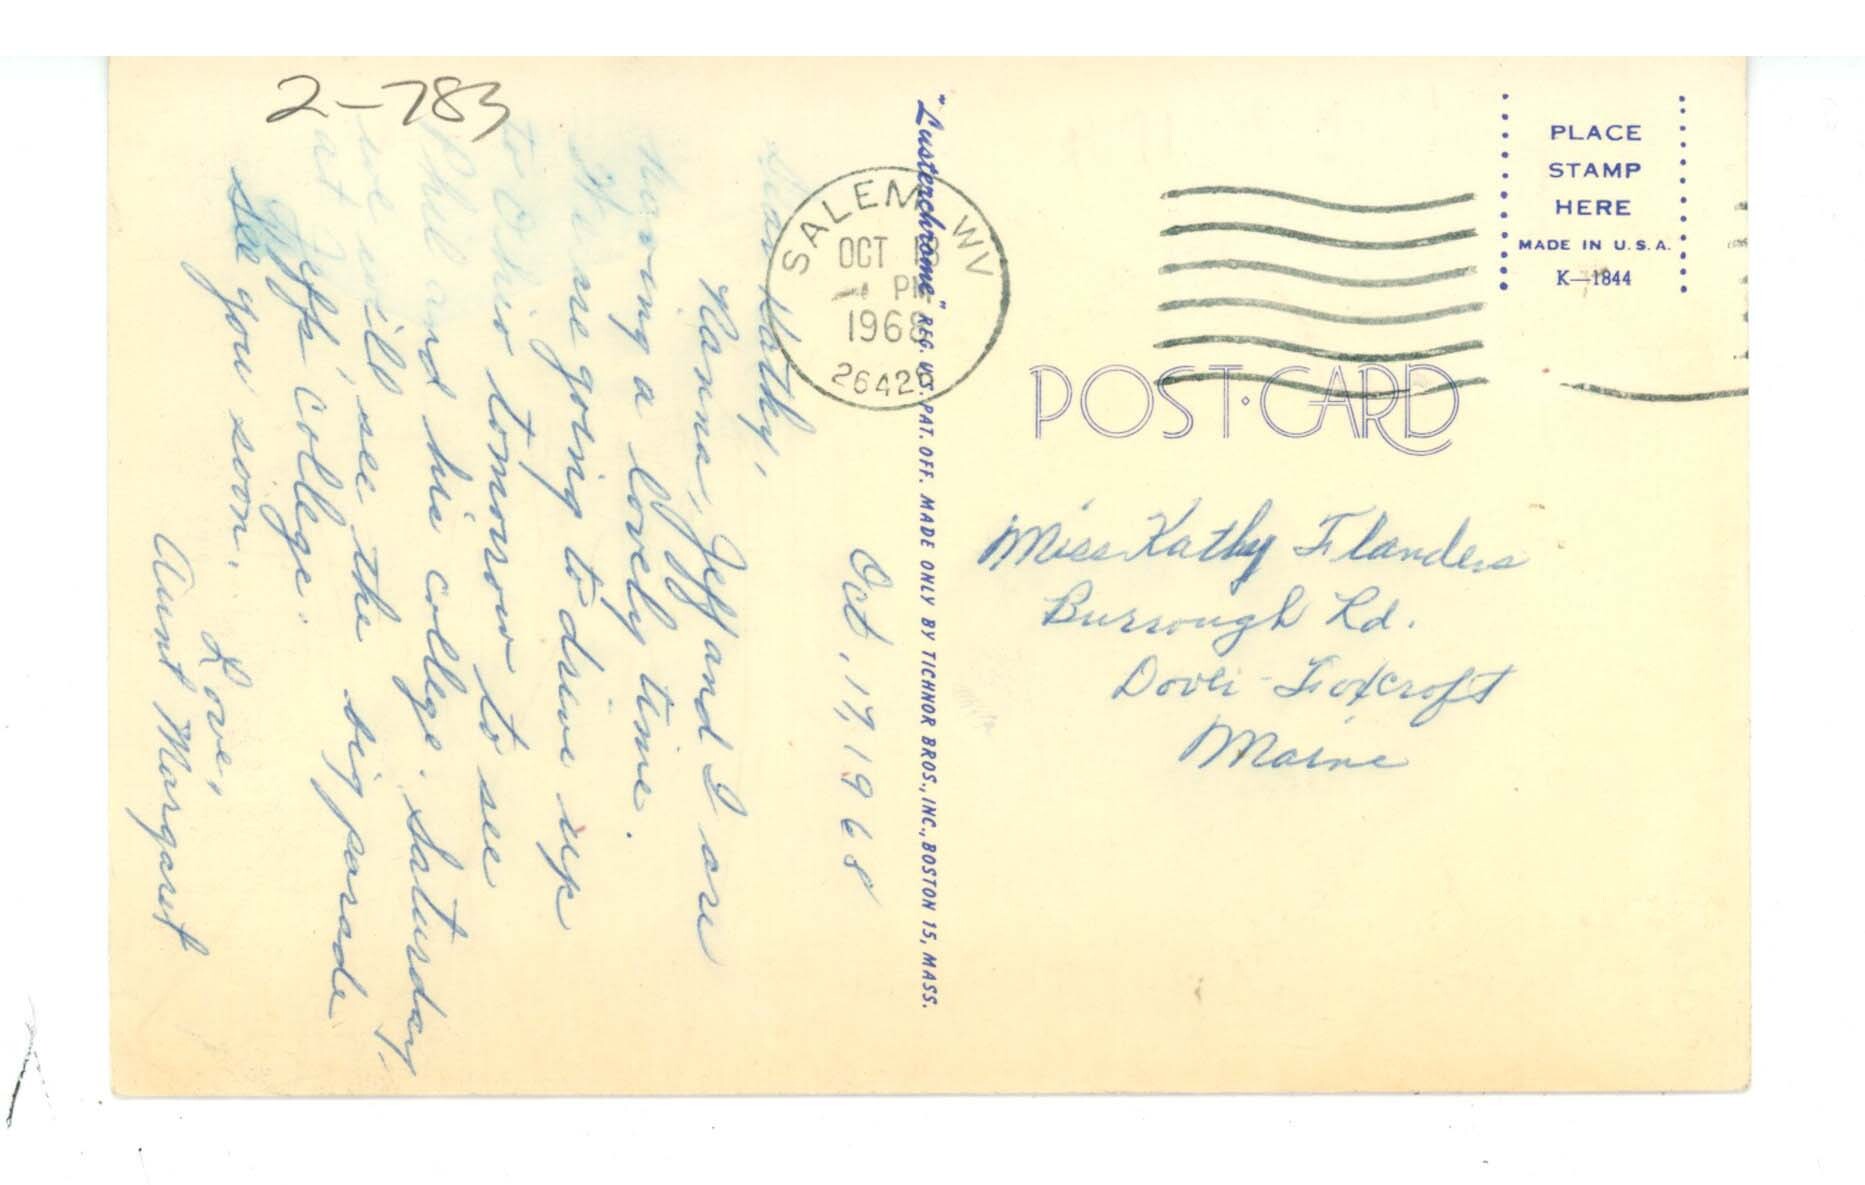 2-783
Oct. 17, 1968
Dear Kathy,
Nanna, Jeff and I are
having a lovely time.
We are going to drive up
to Ohio tomorrow to see
Phil and his college. Saturday,
we will see the big parade
at Jeff's college.
See you soon.
Love,
Aunt Margaret
SALEM WV
OCT 18
PM
1968
2642
"Lusterchrome" REG. U.S. PAT. OFF. MADE ONLY BY TICHNOR BROS., INC., BOSTON 15, MASS.
PLACE
STAMP
HERE
MADE IN U.S.A.
K-1844
POST CARD
Miss Kathy Flanders
Burrough Rd.
Dover-Foxcroft
Maine